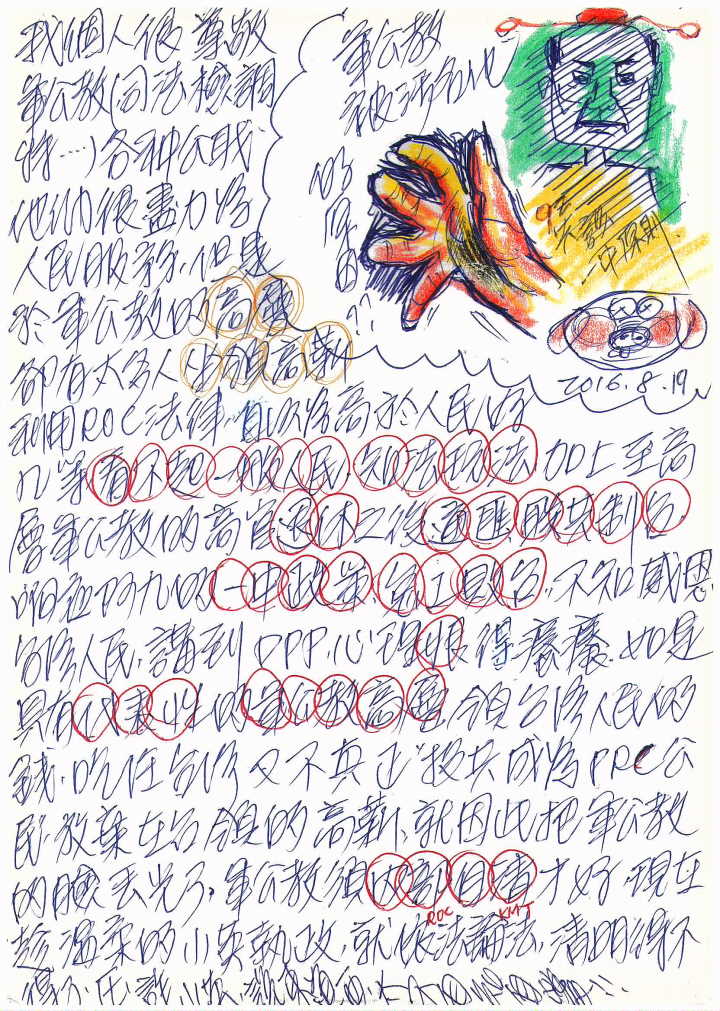 我個人很尊敬
軍公教(司法檢調
特…)各种公職
他們很盡力為
人民服務,但是
於軍公教的高層
卻有太多人坐領高薪
利用ROC法律,自以為高於人民好
几等看不起一般人民,知法玩法加上至高
層軍公教的高官退休之後
阿九的一中政策
台湾人民,講到DPP,心裡恨得癢癢,如是
具有代表性的軍公教高層,領台湾人民的
錢,吃住台湾又不真正投共成為PRC公
民,放棄在台領的高薪,就因此把軍公教
的臉丟光了,軍公教須內部自清才好,現在
趁溫柔的小英執政,就依法論法,清明得不
ROC
KMT
軍公教
被污名化
的原因
??
一中原則
2016.8.19